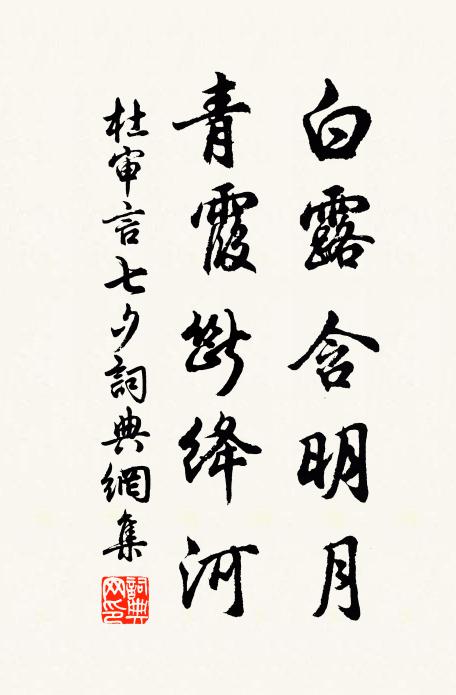 白露含明月
青霞斷絳河
杜审言七夕詞典網集
詞典网印